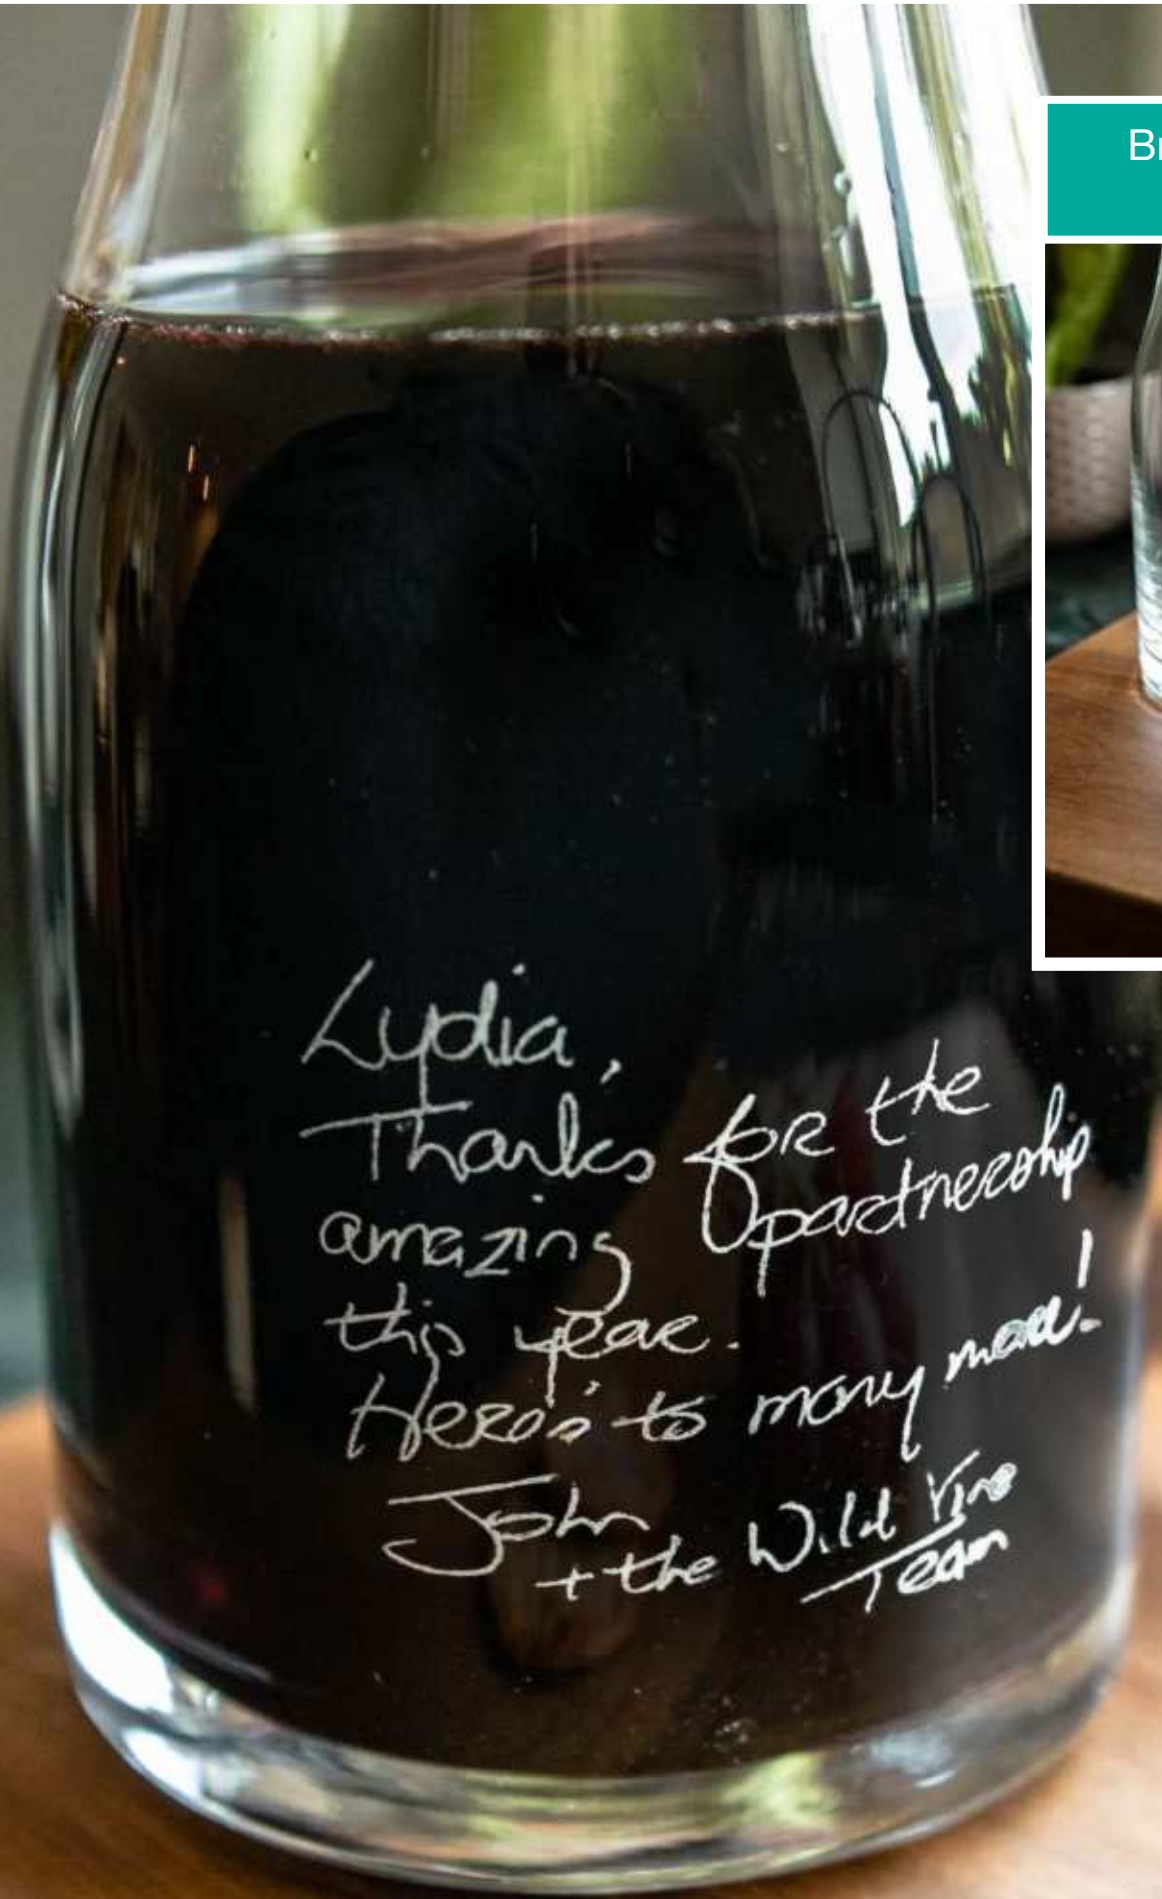 Br
Lydia,
Thanks for the
amazing partnership
this year.
Here's to many more!
John
+ the Wild Vine
Team